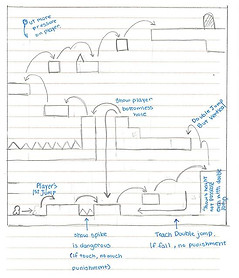 Put more
pressure
on player.
Show player
bottomless
hole
Double Jump
But vertical
Player's
1st Jump
Show spike
is dangerous
(if touch, no much
punishment)
Teach Double jump,
if fail, no punishment